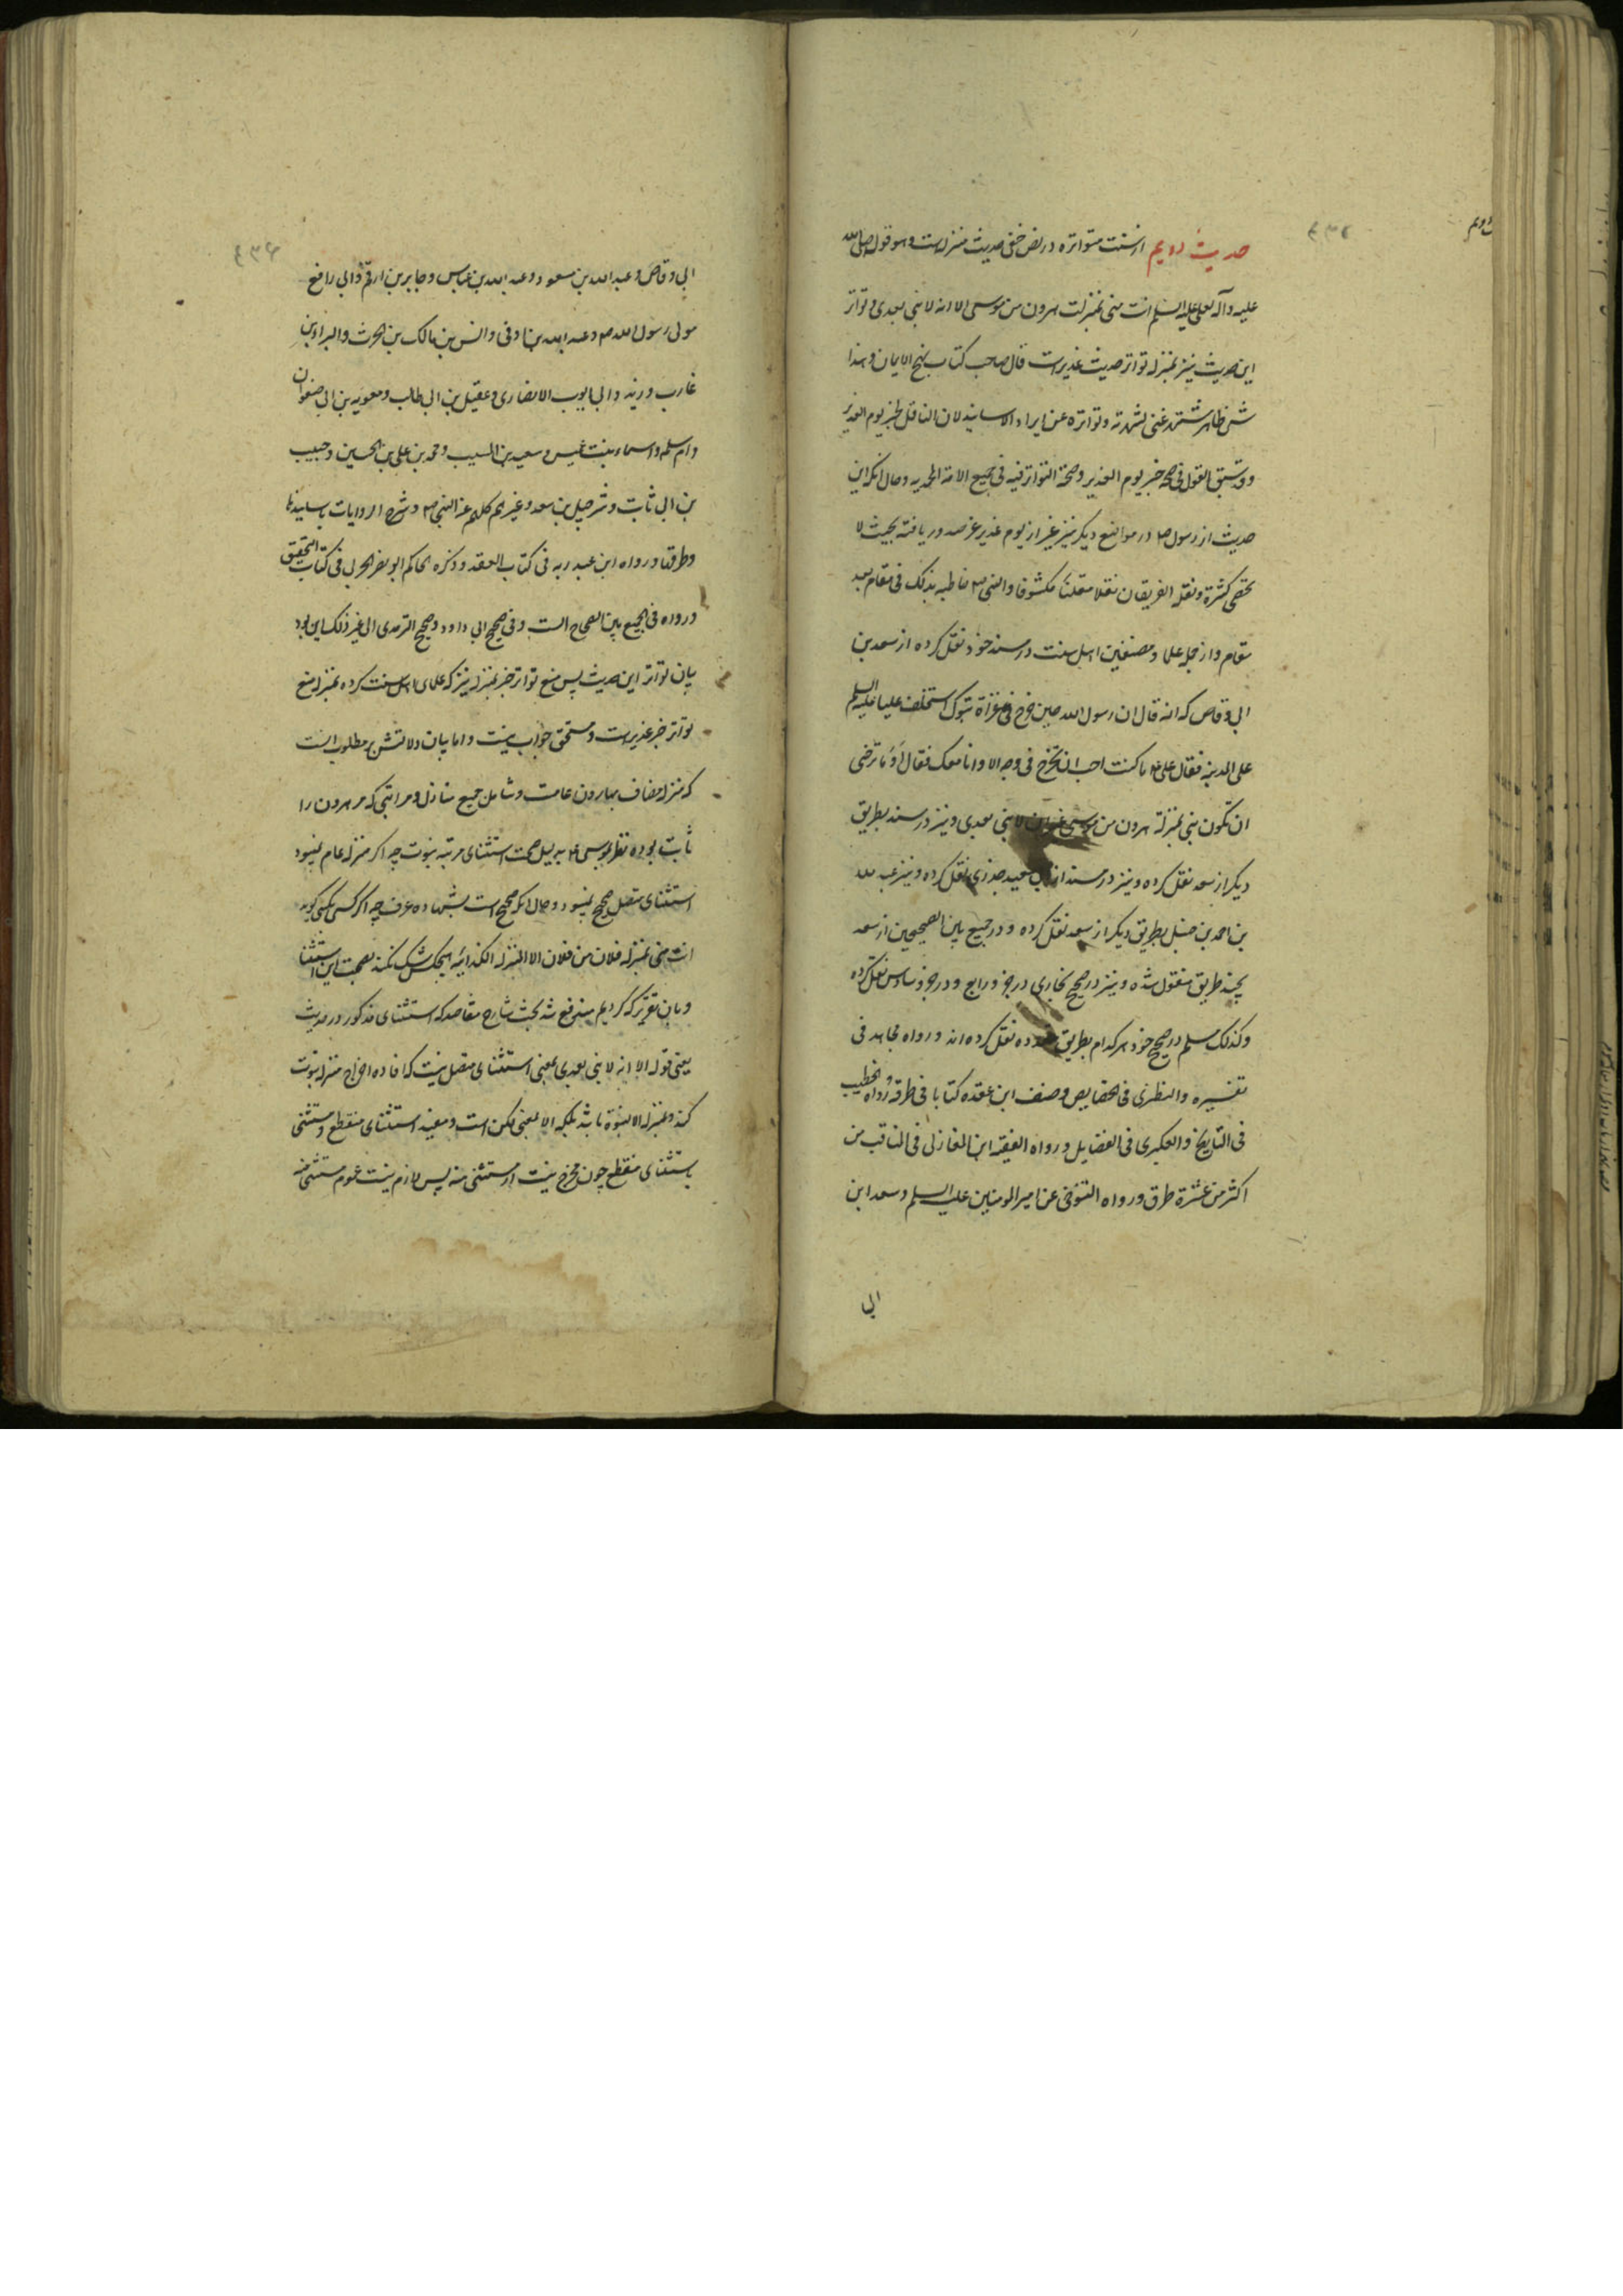 حدیث دویم از سنت متواتره در نص خفی حدیث منزلست و هو قول صلی الله
علیه و آله لعلی علیه السلم انت منی بمنزلت هرون من موسی الا انه لا نبی بعدی و تواتر
این حدیث نیز بمنزله تواتر حدیث غدیرست قال صاحب کتاب نهج الایمان و هذا
شئ ظاهر مشتهر غنی لشهرته و تواتره عن ایراد الاسانید لان الناقل لخبر یوم الغدیر
و قد سبق القول فی صحه خبر یوم الغدیر و صحة التواتر فیه فی جمیع الامة المحمدیه و حال انکه این
حدیث از رسول ص در مواضع دیکر نیز غیر از یوم غدیر عز صدور یافته بحیث لا
تحصی کثرة و نقله الفریقان نقلا مکشوفا و النبی ص خاطبه بذلک فی مقام بعد
مقام و از جمله علما و مصنفین اهل سنت در مسند خود نقل کرده از سعد بن
ابی وقاص که انه قال ان رسول الله حین خرج فی غزاة تبوک استخلف علیا علیه السلم
علی المدینه فقال علی ع ما کنت احب ان تخرج فی وجه الا و انا معک فقال او ما ترضی
ان تکون منی بمنزلة هرون من موسی غیر انه لا نبی بعدی و نیز در مسند بطریق
دیکر از سعد نقل کرده و نیز در مسند از ابی سعید خدری نقل کرده و نیز عبد الله
بن احمد بن حنبل بطریق دیکر از سعد نقل کرده و در جمیع بین الصحیحین از سعد
بچند طریق منقول شده و نیز در صحیح بخاری در جزو رابع و در جزو سادس نقل کرده
و کذلک مسلم در صحیح خود هر کدام بطریق متعدده نقل کرده اند و رواه مجاهد فی
تفسیره و النطنزی فی الخصایص و صنف ابن عقده کتابا فی طرقه و رواه الخطیب
فی التاریخ و العکبری فی الفضایل و رواه الفقیه ابن المغازلی فی المناقب من
اکثر من عشرة طرق و رواه التنوخی عن امیر المومنین علیه السلم و سعد ابن
ابی
ابی وقاص و عبد الله بن مسعود و عبد الله بن عباس و جابر بن ارقم و ابی رافع
مولی رسول الله ص و عبد الله بن اوفی و انس بن مالک بن الحرث و البراء بن
عازب و زید و ابی ایوب الانصاری و عقیل بن ابی طالب و معویه بن ابی صفوان
و ام سلمه و اسماء بنت عمیس و سعید بن المسیب و محمد بن علی بن الحسین و حبیب
بن ابی ثابت و شرحبیل بن سعد و غیرهم کلهم عن النبی ص و شرح الروایات باسانیدها
و طرقها و رواه ابن عبد ربه فی کتاب العقد و ذکره الحاکم ابو نصر الحربی فی کتاب التحقیق
و رواه فی الجمع بین الصحاح الست و فی صحیح ابی داود و صحیح الترمذی الی غیر ذلک این بود
بیان تواتر این حدیث پس منع تواتر خبر منزله نیز که علمای اهل سنت کرده بمنزله منع
تواتر خبر غدیرست و مستحق جواب نیست و اما بیان دلالتش بر مطلوب انست
که منزله مضاف بهارون عامست و شامل جمیع منازل و مراتبی که مر هرون را
ثابت بوده نظر بموسی ع بدلیل صحت استثنای مرتبه نبوت چه اکر منزله عام نمیبود
استثنای متصل صحیح نمیبود و حال انکه صحیح است بشهاده عرف چه اکر کسی بکسی کوید
انت منی بمنزله فلان من فلان الا المنزله الکذائیه هیچکس شک نکند بصحت این استثنا
و باین تقریر که کردیم مندفع شد بحث شارح مقاصد که استثنای مذکور در حدیث
یعنی قوله الا انه لا نبی بعدی بمعنی استثنای متصل نیست که افاده اخراج منزله نبوت
کند و بمنزله الا النبوة باشد بلکه الا بمعنی لکن است و مفید استثنای منقطع و مستثنی
باستثنای منقطع چون مخرج نیست از مستثنی منه پس لازم نیست عموم مستثنی منه